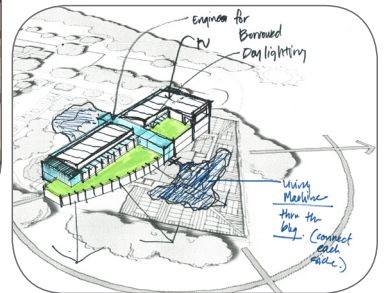 Engineer for
Borrowed
PV
Daylighting
Living
Machine
thru the
bldg. (connect
each
side.)